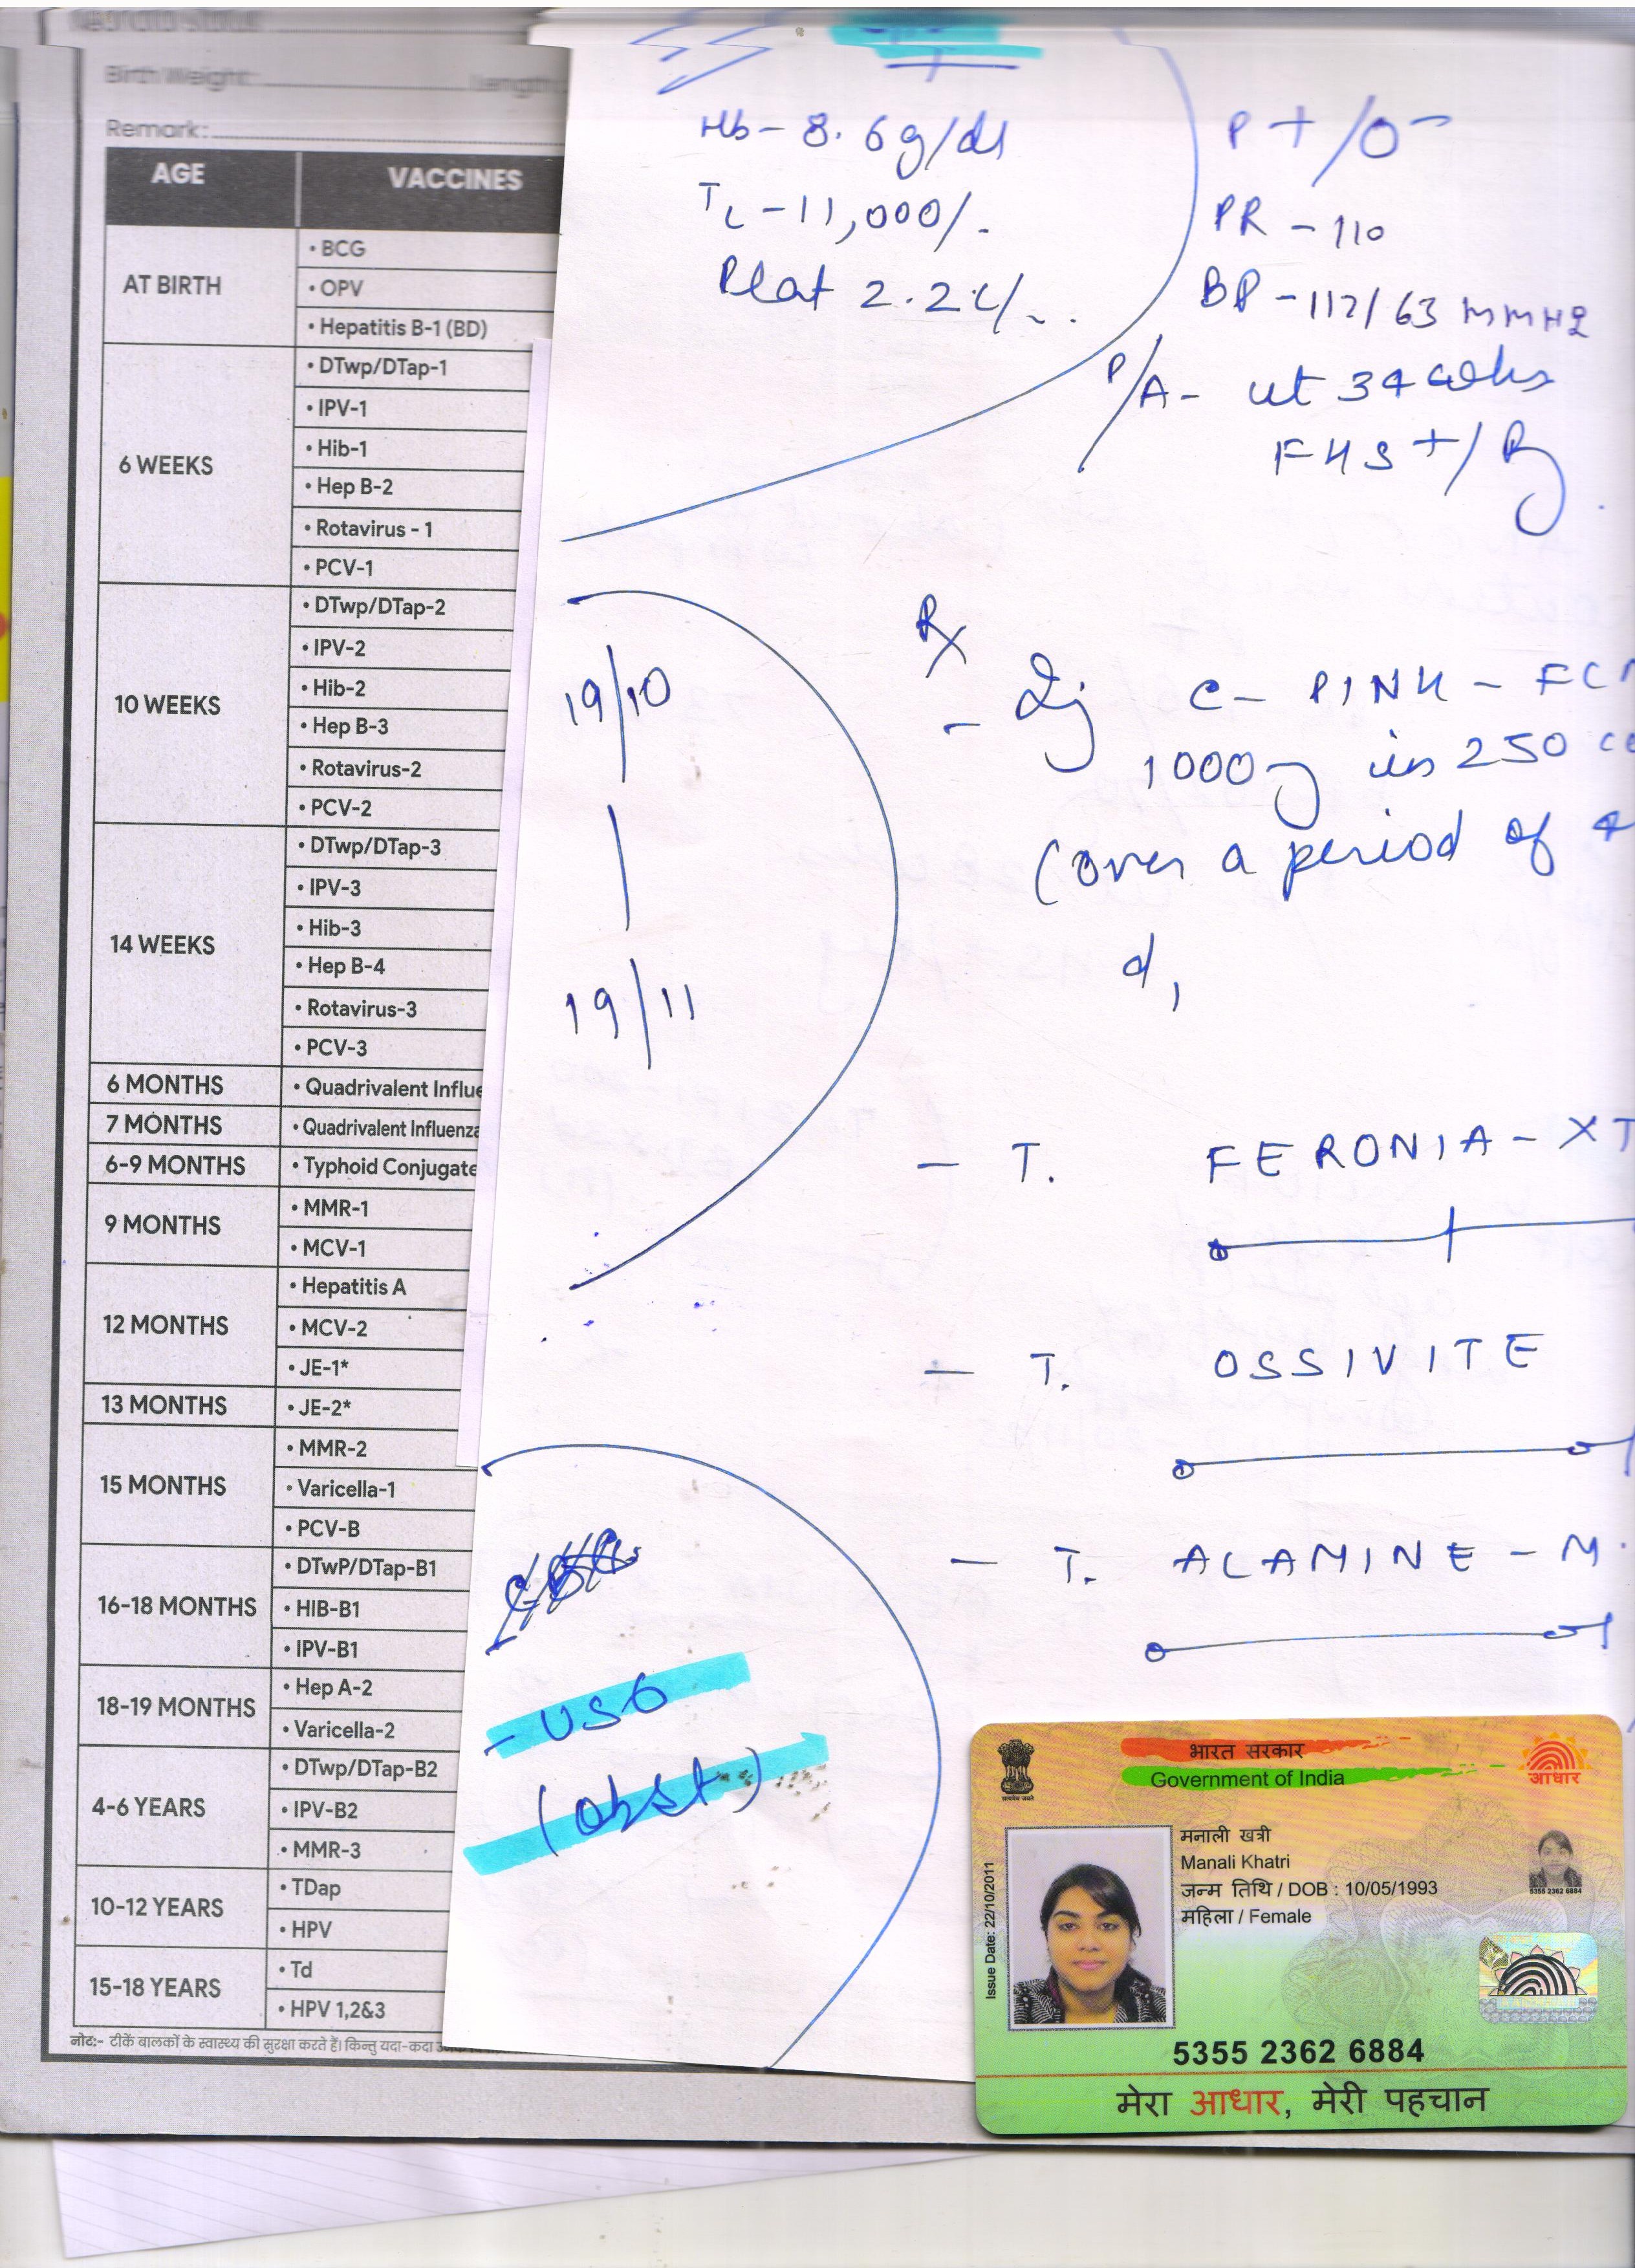 Birth Weight: Length:
Remark:
AGE VACCINES
AT BIRTH
• BCG
• OPV
• Hepatitis B-1 (BD)
6 WEEKS
• DTwp/DTap-1
• IPV-1
• Hib-1
• Hep B-2
• Rotavirus - 1
• PCV-1
10 WEEKS
• DTwp/DTap-2
• IPV-2
• Hib-2
• Hep B-3
• Rotavirus-2
• PCV-2
14 WEEKS
• DTwp/DTap-3
• IPV-3
• Hib-3
• Hep B-4
• Rotavirus-3
• PCV-3
6 MONTHS • Quadrivalent Influe
7 MONTHS • Quadrivalent Influenza
6-9 MONTHS • Typhoid Conjugate
9 MONTHS
• MMR-1
• MCV-1
12 MONTHS
• Hepatitis A
• MCV-2
• JE-1*
13 MONTHS • JE-2*
15 MONTHS
• MMR-2
• Varicella-1
• PCV-B
16-18 MONTHS
• DTwP/DTap-B1
• HIB-B1
• IPV-B1
18-19 MONTHS
• Hep A-2
• Varicella-2
4-6 YEARS
• DTwp/DTap-B2
• IPV-B2
• MMR-3
10-12 YEARS
• TDap
• HPV
15-18 YEARS
• Td
• HPV 1,2&3
नोट:- टीकें बालकों के स्वास्थ्य की सुरक्षा करते हैं। किन्तु यदा-कदा
Hb - 8.6 g/dl
TL - 11,000/-
Plat 2.2 L/-.
P + / O -
PR - 110
BP - 112/63 mmHg
P/A - ut 34 wks
FHS + / R
19/10
19/11
Rx
- Inj C-PINK - FCM
1000 mg in 250 cc
(over a period of
- T. FERONIA - XT
- T. OSSIVITE
- T. ALAMINE - M.
- USG
(obst)
भारत सरकार
Government of India
आधार
मनाली खत्री
Manali Khatri
जन्म तिथि / DOB : 10/05/1993
महिला / Female
5355 2362 6884
Issue Date: 22/10/2011
5355 2362 6884
मेरा आधार, मेरी पहचान